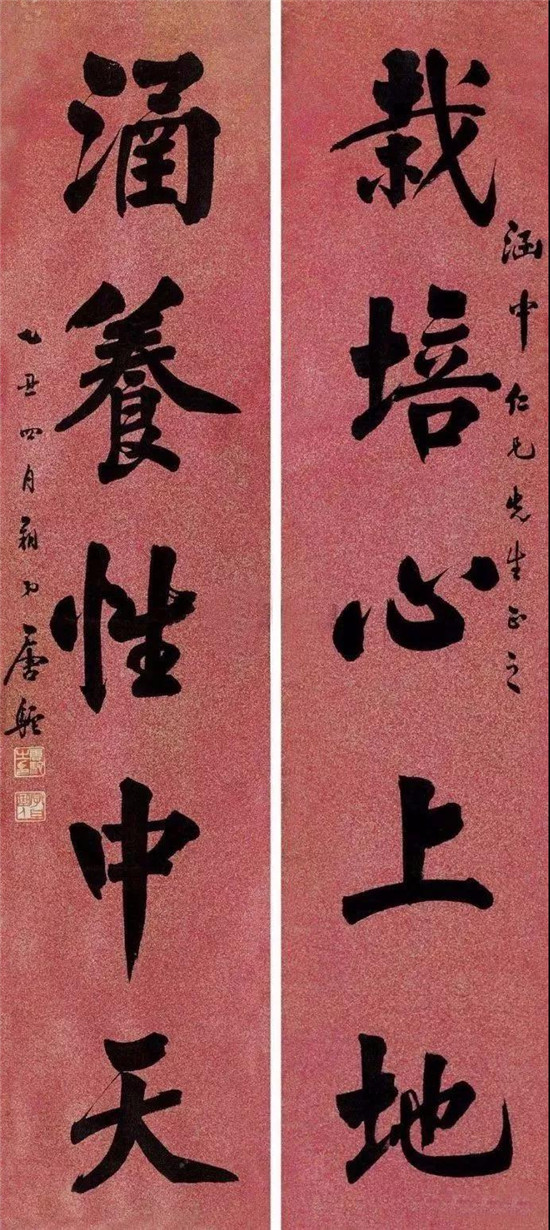 涵中仁兄先生正之
栽培心上地
涵養性中天
乙丑四月蓺孫唐駝